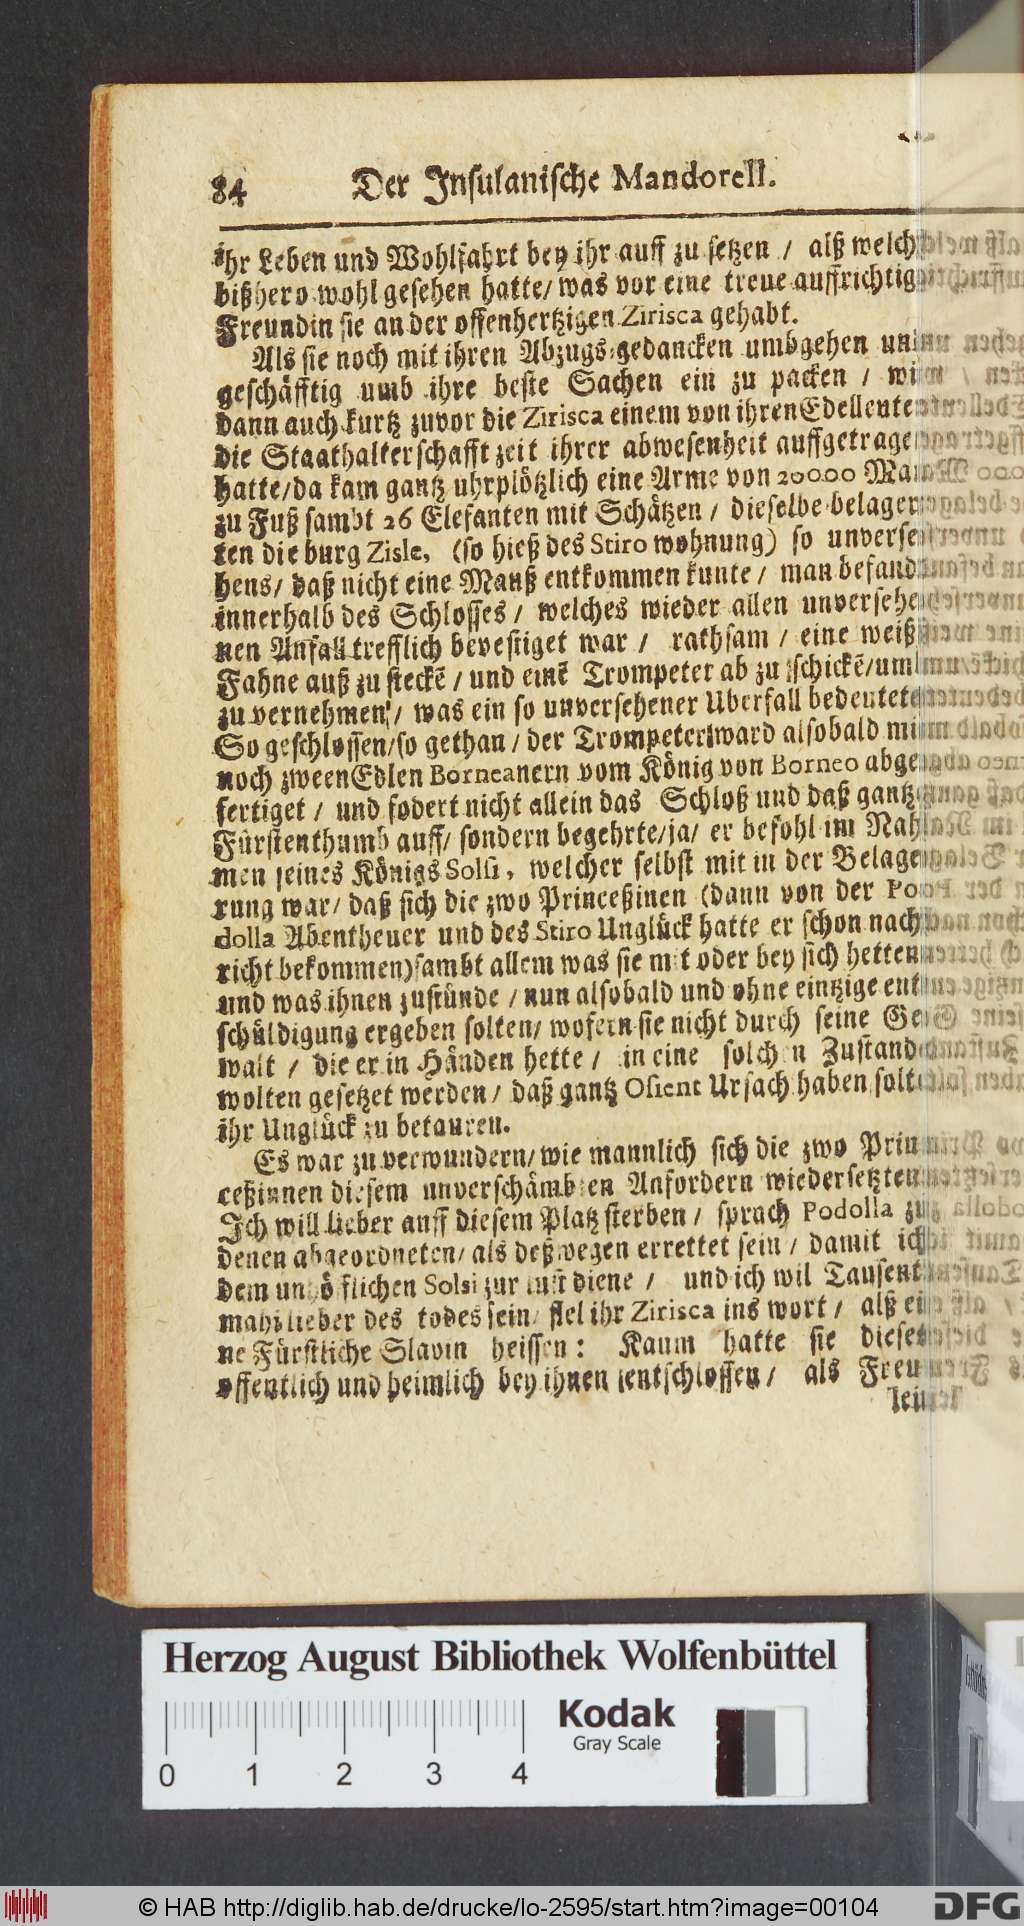 84 Der Insulanische Mandorell.
ihr Leben und Wohlfahrt bey ihr auff zu setzen / alß welch
bißhero wohl gesehen hatte/ was vor eine treue auffrichtig
Freundin sie an der offenhertzigen Zirisca gehabt.
Als sie noch mit ihren Abzugs-gedancken umbgehen un
geschäfftig umb ihre beste Sachen ein zu packen / wi
dann auch kurtz zuvor die Zirisca einem von ihren Edelleute
die Staathalterschafft zeit ihrer abwesenheit auffgetrage
hatte/ da kam gantz uhrplötzlich eine Arme von 20000 Man
zu Fuß sambt 26 Elefanten mit Schätzen / dieselbe belager
ten die burg Zisle, (so hieß des Stiro wohnung) so unverse
hens/ daß nicht eine Mauß entkommen kunte / man befand
innerhalb des Schlosses / welches wieder allen unversehe
nen Anfall trefflich bevestiget war / rathsam / eine weiß
Fahne auß zu steckē / und einē Trompeter ab zu schickē/ um
zu vernehmen / was ein so unversehener Uberfall bedeutete
So geschlossen/ so gethan / der Trompeter ward alsobald mi
noch zween Edlen Borneanern vom König von Borneo abge
fertiget / und fodert nicht allein das Schloß und daß gantz
Fürstenthumb auff/ sondern begehrte/ ja/ er befohl im Nah
men seines Königs Solsi, welcher selbst mit in der Belage
rung war/ daß sich die zwo Princeßinen (dann von der Po
dolla Abentheuer und des Stiro Unglück hatte er schon nach
richt bekommen) sambt allem was sie mit oder bey sich hetten
und was ihnen zustünde / nun alsobald und ohne eintzige ent
schüldigung ergeben solten/ wofern sie nicht durch seine Ge
walt / die er in Händen hette / in eine solchen Zustand
wolten gesetzet werden / daß gantz Osient Ursach haben solt
ihr Unglück zu betauren.
Es war zu verwundern/ wie mannlich sich die zwo Prin
ceßinnen diesem unverschämbten Anfordern wiedersetzten
Ich will lieber auff diesem Platz sterben / sprach Podolla zu
denen abgeordneten/ als deßwegen errettet sein / damit ich
dem unhöflichen Solsi zur lust diene / und ich wil Tausent
mahl lieber des todes sein/ fiel ihr Zirisca ins wort / alß ei
ne Fürstliche Slavin heissen: Kaum hatte sie dieses
offentlich und heimlich bey ihnen entschlossen / als Freu
Herzog August Bibliothek Wolfenbüttel
0 1 2 3 4
Kodak
Gray Scale
© HAB http://diglib.hab.de/drucke/lo-2595/start.htm?image=00104
DFG